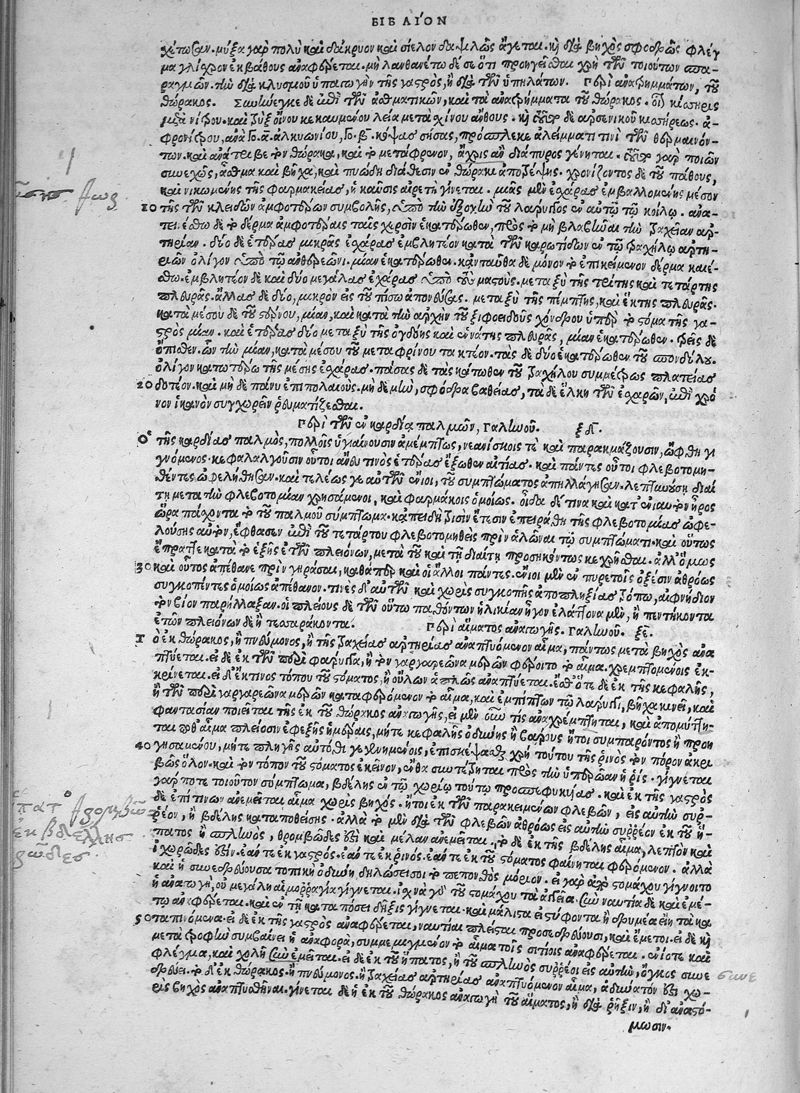 ΒΙΒΛΙΟΝ
χέτωσαν. μύξα γὰρ πολὺ καὶ δάκρυον καὶ σίελον δαψιλῶς ἄγεται. καὶ διὰ βηχὸς σφοδρῶς φλέγ
μα γλίχρον ἐκ βάθους ἀναφέρεται. μὴ λανθανέτω δέ σε ὅτι προηγεῖσθαι χρὴ τῶν τοιούτων
τὴν διὰ κλυσμοῦ ὑπαγωγὴν τῆς γαστρός, ἢ διὰ τῶν ὑπηλάτων. περὶ ἀναψημμάτων, τοῦ
θώρακος. ἐπὶ τῶν ἀσθματικῶν, καὶ τὰ τοῦ θώρακος.
νίτρου. καὶ κεκαυμένου λεῖα μετὰ σχίνου ἄνθους. ἀρσενικοῦ
ἀλκυονίου, σήσας, πρόσπλεκε ἀλείμματί τινι τῶν θερμαινόν-
των. καὶ ἀνάτριβε τὸν θώρακα, καὶ τὸ μετάφρενον, ἄχρις ἂν διάπυρος γένηται. γὰρ ποιῶν
συνεχῶς, ἄσθμα καὶ βῆχα, καὶ πυώδη διάθεσιν ἐν θώρακι χρονίζοντος δὲ τοῦ πάθους,
καὶ νικωμένης τῆς φαρμακείας, ἡ καῦσις αἱρετὴ γίνεται. μιᾶς μὲν ἐσχάρας ἐμβαλλομένης μέσον
10 τῆς τῶν κλειδῶν ἀμφοτέρων συμβολῆς, ὑπὸ τὴν ἐξοχὴν τοῦ λάρυγγος ἐν αὐτῷ τῷ κοίλῳ.
τὸ δέρμα ἀμφοτέραις ταῖς χερσὶν ἑκατέρωθεν, πρὸς τὸ μὴ βλαβῆναι τὴν τραχεῖαν ἀρ
τηρίαν. δύο δὲ ἑτέρας μικρὰς ἐσχάρας ἐμβλητέον κατὰ τῶν καρωτίδων ἐν τῷ τραχήλῳ ἀρτη-
ριῶν ὀλίγον ὑπὸ τῷ ἀνθερεῶνι. μίαν ἑκατέρωθεν. κἀνταῦθα δὲ μόνον τὸ ἐπικείμενον δέρμα καιέ-
σθω. ἐμβλητέον δὲ καὶ δύο μεγάλας ἐσχάρας ὑπὸ τοὺς μαστούς. μεταξὺ τῆς τρίτης καὶ τετάρτης
πλευρᾶς. ἄλλας δὲ δύο, μικρὸν εἰς τοὐπίσω ἀπονευούσας. μεταξὺ τῆς πέμπτης, καὶ ἕκτης πλευρᾶς.
κατὰ μέσου δὲ τοῦ στέρνου, μίαν, καὶ κατὰ τὴν ἀρχὴν τοῦ ξιφοειδοῦς χόνδρου ὑπὲρ τὸ στόμα τῆς γα-
στρὸς μίαν. καὶ ἑτέρας δύο μεταξὺ τῆς ὀγδόης καὶ ἐννάτης πλευρᾶς, μίαν ἑκατέρωθεν. τρεῖς δὲ
ὄπισθεν. ὧν τὴν μίαν, κατὰ μέσου τοῦ μεταφρένου τακτέον. τὰς δὲ δύο ἑκατέρωθεν τοῦ σπονδύλου.
ὀλίγον κατωτέρω τῆς μέσης ἐσχάρας. πάσας δὲ τὰς κάτωθεν τοῦ τραχήλου συμμέτρως πλατείας
20 δοτέον. καὶ μὴ δὲ πάνυ ἐπιπολαίους. μὴ δὲ μὴν, σφόδρα βαθείας, τὰ δὲ ἕλκη τῶν ἐσχαρῶν, ἐπὶ χρό
νον ἱκανὸν συγχωρεῖν ῥευματίζεσθαι.
περὶ τῶν ἐν καρδίᾳ παλμῶν, γαλίωοῦ. ξδ.
Ο τῆς καρδίας παλμὸς, πολλοῖς ὑγιαίνουσιν ἀμέμπτως, νεανίσκοις τὲ καὶ παρακμάζουσιν, ὤφθη γι
γνόμενος. κεφαλαλγοῦσιν οὗτοι ἄνευ τινὸς ἑτέρας ἔξωθεν αἰτίας. καὶ πάντες οὗτοι φλεβοτομη-
θέντες ὠφελήθησαν. καὶ τελέως γε αὐτῶν ἔνιοι, τοῦ συμπτώματος ἀπηλλάγησαν. λεπτυνούσῃ διαί
τῃ μετὰ τὴν φλεβοτομίαν χρησάμενοι, καὶ φαρμάκοις ὁμοίως. οἶδα δέ τινα καὶ κατ' ἐνιαυτὸν ἦρος
ὥρᾳ πάσχοντα τὸ τοῦ παλμοῦ σύμπτωμα. κἀπειδὴ τρισὶν ἔτεσιν ἐπειράθη τῆς φλεβοτομίας ὠφε-
λούσης αὐτὸν, ἔφθασεν ἐπὶ τοῦ τετάρτου φλεβοτομηθεὶς πρὶν ἁλῶναι τῷ συμπτώματι. καὶ οὕτως
ἔπραξε κατὰ τὸ ἑξῆς ἐτῶν πλειόνων, μετὰ τοῦ καὶ τῇ διαίτῃ προσηκόντως κεχρῆσθαι. ἀλλ' ὅμως
30 καὶ οὗτος ἀπέθανε πρὶν γηρᾶσαι, καθάπερ καὶ οἱ ἄλλοι πάντες. ἔνιοι μὲν ἐν πυρετοῖς ὀξέσιν ἀθρόως
συγκοπέντες ὁμοίως ἀπέθανον. τινὲς δ' αὐτῶν καὶ χωρὶς συγκοπῆς ἀποπληξίας τρόπῳ, αἰφνίδιον
τὸν βίον παρήλλαξαν. οἱ πλείους δὲ τῶν οὕτω παθόντων ἡλικίαν ἦγον ἐλάττονα μὲν, ἢ πεντήκοντα
ἐτῶν πλειόνων δὲ ἢ τεσσαράκοντα. περὶ αἵματος ἀναγωγῆς. γαλίωοῦ. ξε.
Τ ὸ ἐκ θώρακος, ἢ πνεύμονος, ἢ τῆς τραχείας ἀρτηρίας ἀναπτυόμενον αἷμα, πάντως μετὰ βηχὸς ἀνα
πτύεται. εἰ δὲ ἐκ τῶν περὶ φάρυγγα, ἢ τὸν γαργαρεῶνα μερῶν φέροιτο τὸ αἷμα. χρεμπτομένοις ἐκ-
κρίνεται. εἰ δ' ἔκ τινος τόπου τοῦ στόματος, ἢ οὔλων ἁπλῶς ἀναπτύεται. ἔσθ' ὅτε δὲ ἐκ τῆς κεφαλῆς,
ἢ τῶν περὶ γαργαρεῶνα μερῶν καταφερόμενον τὸ αἷμα, καὶ ἐμπίπτων τῷ λάρυγγι, βῆχα κινεῖ, καὶ
φαντασίαν ποιεῖται τῆς ἐκ τοῦ θώρακος ἀναγωγῆς, εἰ μὲν οὖν τις ἀναχρέμπτηται, καὶ ἀπομύττη-
ται ποθ' αἷμα πλείοσιν ἐφεξῆς ἡμέραις, μήτε κεφαλῆς ὀδύνης ἢ βάρους ἤτοι συμπαρόντος ἢ προη
40 γησαμένου, μήτε πληγῆς αὐτόθι γεγενημένης, ἐπισκέψασθαι χρὴ τούτου τῆς ῥινὸς τὸν πόρον ἀκρι
βῶς ὅλον. καὶ τὸν τόπον τοῦ στόματος ἐκεῖνον, ἔνθα συντέτρηται πρὸς τὴν ὑπερῴαν ἡ ῥίς. γίγνεται
γάρ ποτε τοιοῦτον σύμπτωμα, βδέλλης ἐν τῷ χωρίῳ τούτῳ προσπεφυκυίας. καὶ ἐκ τῆς γαστρὸς
δὲ ἐπί τινων ἀνεμεῖται αἷμα χωρὶς βηχός. ἤτοι ἐκ τῶν παρακειμένων φλεβῶν, εἰς αὐτὴν συρ-
ρέον, ἢ βδέλλης καταποθείσης. ἀλλὰ τὸ μὲν διὰ τῶν φλεβῶν ἀθρόως εἰς αὐτὴν συρρέον ἐκ τοῦ ἥ-
πατος ἢ σπληνὸς, θρομβῶδές ἐστι καὶ μέλαν ἀνεμεῖται. τὸ δὲ ἐκ τῆς βδέλλης αἷμα, λεπτὸν καὶ
ἰχωρῶδές ἐστιν. ἐάν τε ἐκ γαστρός. ἐάν τε ἐκ ῥινός. ἐάν τε ἐκ τοῦ στόματος φαίνηται φερόμενον. ἀλλὰ
καὶ ἡ συνεδρεύουσα τοπικὴ ὀδύνη δηλώσει σοι τὸ πεπονθὸς μόριον. εἰ γὰρ ἀπὸ στομάχου γίγνοιτο
ἡ ἀναγωγὴ, οὐ μεγάλη αἱμορραγία γίγνεται. ἰσχνὰ γὰρ τοῦ στομάχου τὰ ἀγγεῖα. σὺν ναυτίᾳ δὲ καὶ ἐμέ-
τῳ ἀναφέρεται. καὶ ἐν τῇ καταπόσει δῆξις γίγνεται. καὶ μάλιστα εἰ στύφοντα ἢ δριμέα εἴη τὰ κα
50 ταπινόμενα. εἰ δὲ ἐκ τῆς γαστρὸς ἀναφέρεται, ναυτίαι πλεῖσται προσεδρεύουσι, καὶ ἔμετοι. εἰ δὲ καὶ
μετὰ τροφὴν συμβαίνει ἡ ἀναφορὰ, συμμεμιγμένον τὸ αἷμα τοῖς σιτίοις ἀναφέρεται. ἐνίοτε καὶ
φλέγμα, καὶ χολὴ συνεμεῖται. εἰ δὲ ἐκ τοῦ ἥπατος, ἢ τοῦ σπληνὸς συρρέοι εἰς αὐτὴν, ὄγκος συνε
δρεύει. τὸ δὲ ἐκ θώρακος. ἢ πνεύμονος. ἢ τραχείας ἀρτηρίας ἀναπτυόμενον αἷμα, ἀδύνατόν ἐστι χω-
ρὶς βηχὸς ἀναπτυσθῆναι. γίνεται δὲ ἡ ἐκ τοῦ θώρακος ἀναγωγὴ τοῦ αἵματος, ἢ διὰ ῥῆξιν, ἢ δι' ἀναστό-
μωσιν.